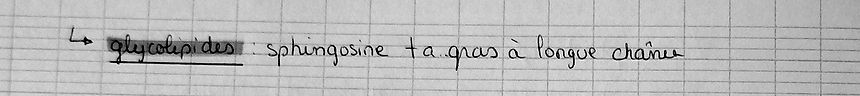 ↳ glycolipides : sphingosine + a.gras à longue chaîne